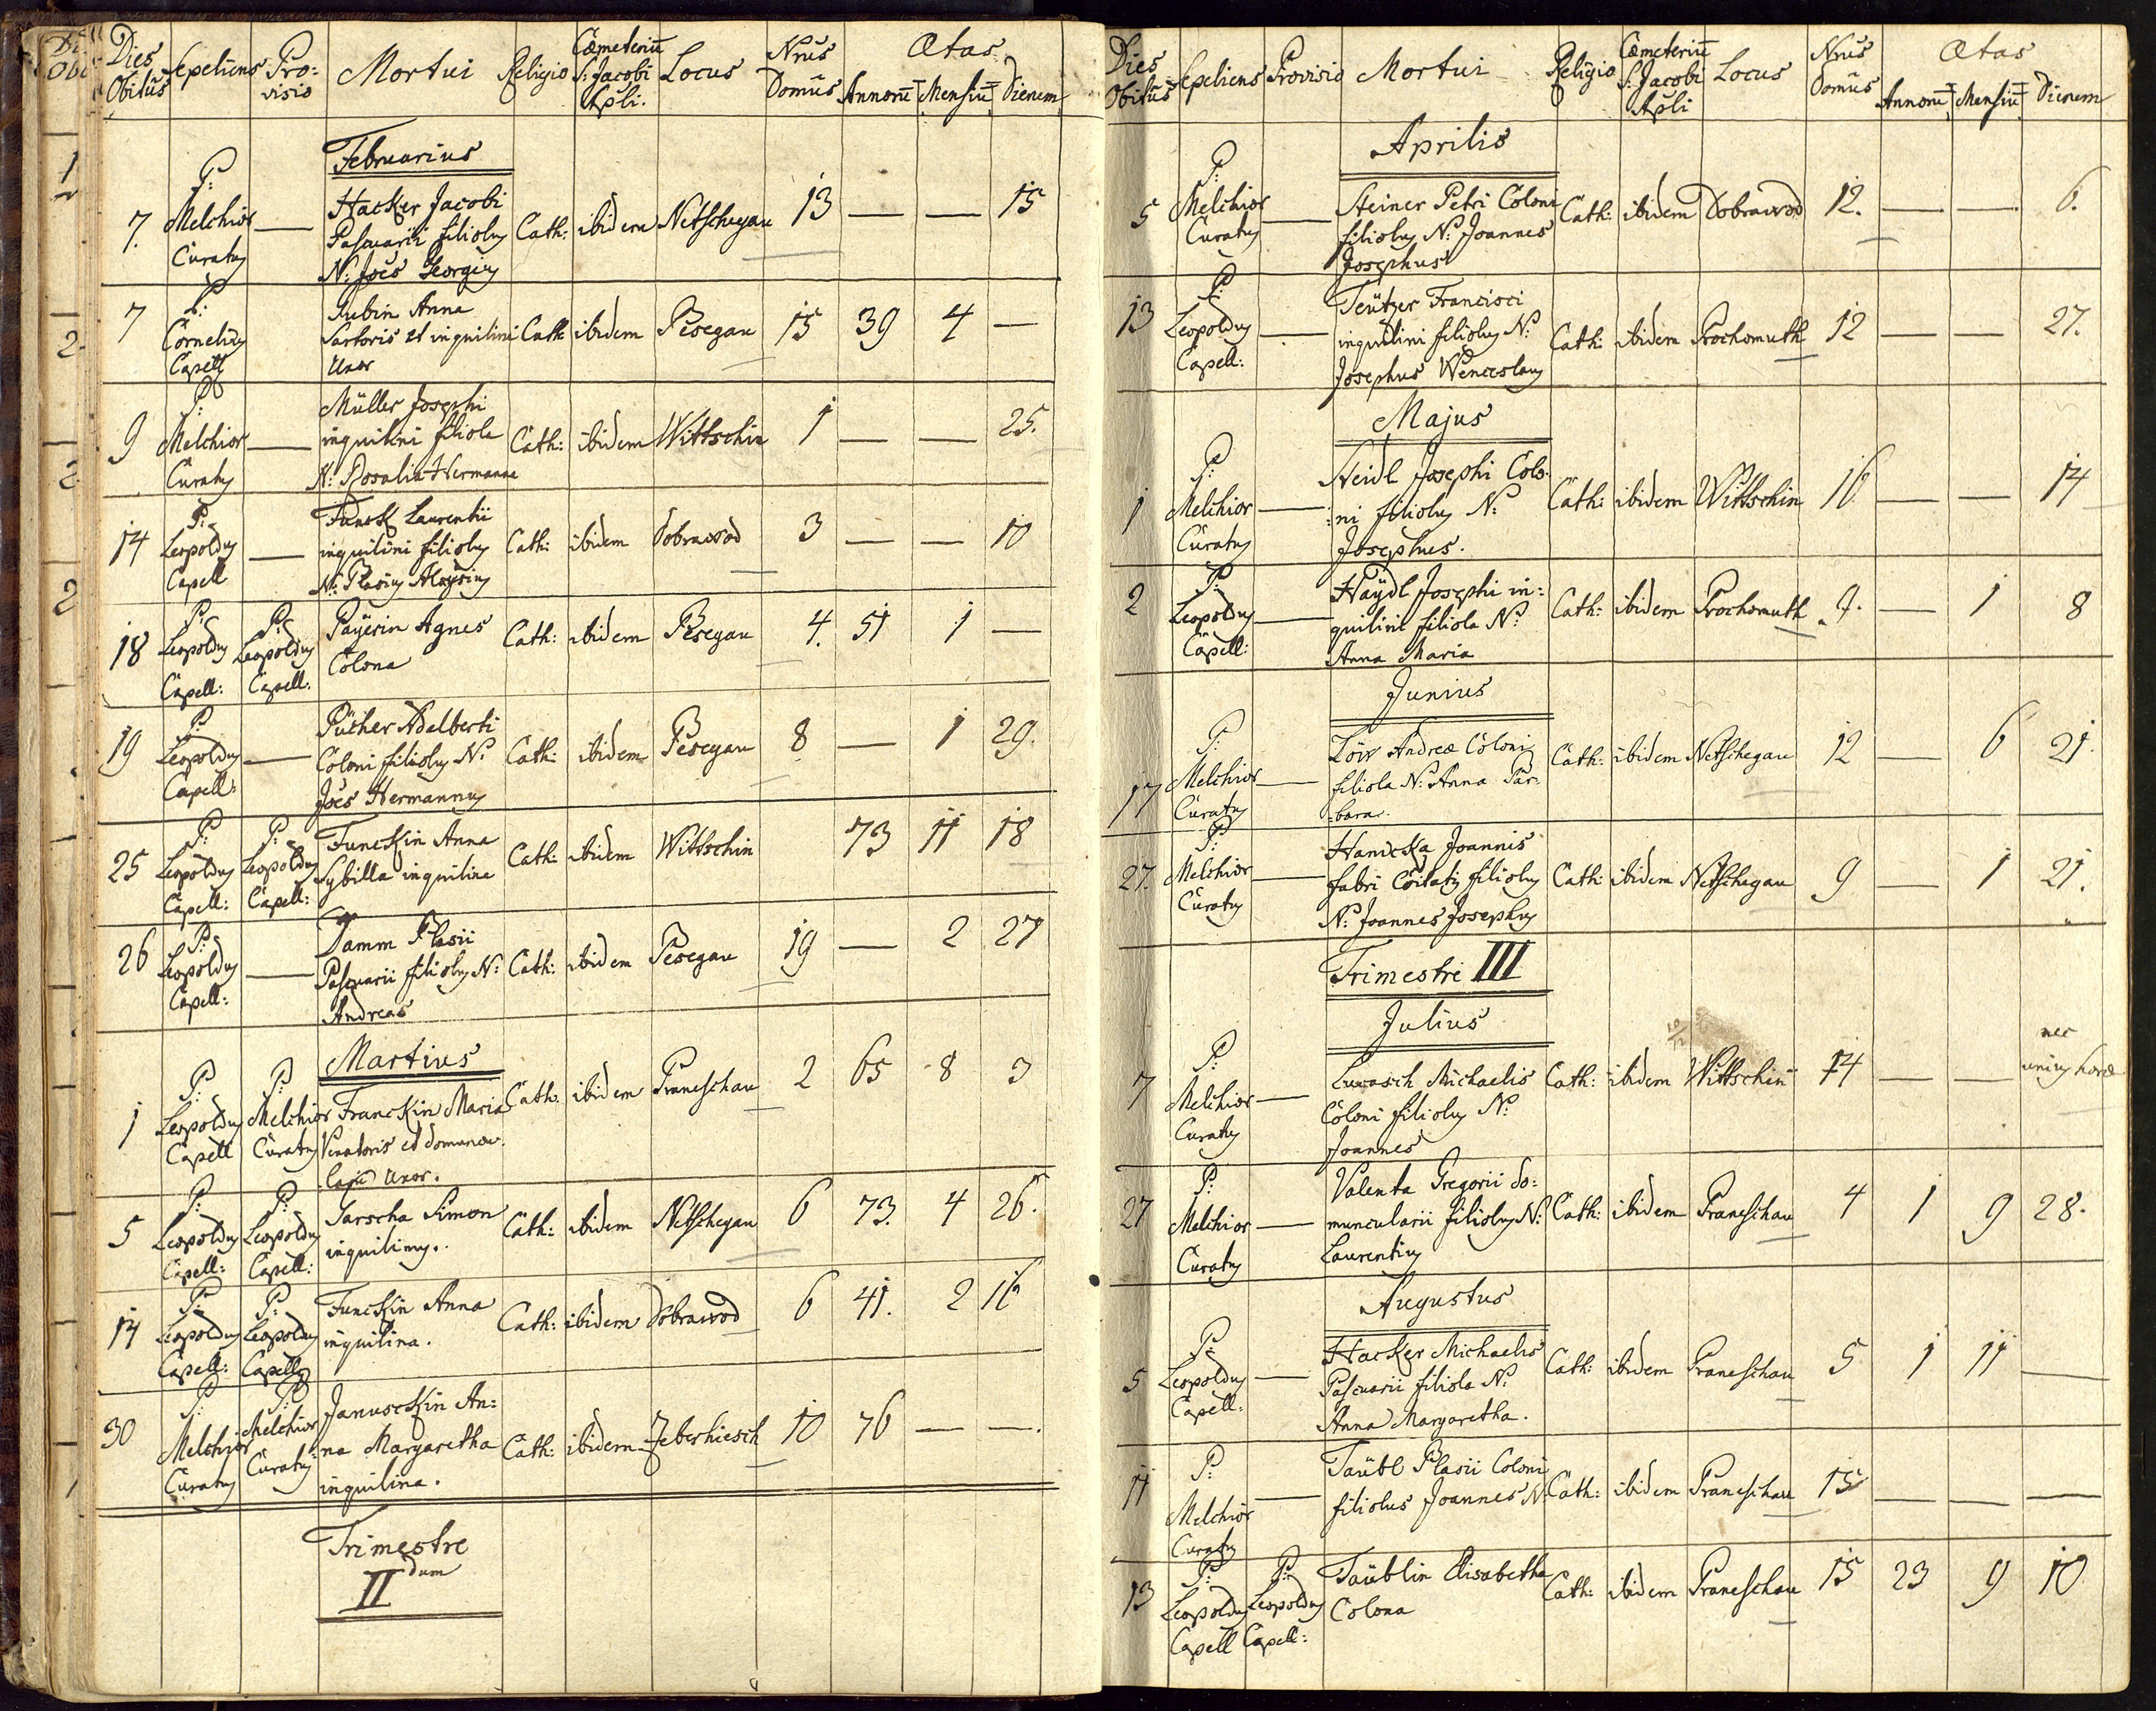 Dies Obitus Sepeliens Provisio Mortui Religio Cœmeteriū S: Jacobi Apli: Locus Nrus Domus Ætas Annorū Mensiū Dierum
Februarius
7. P: Melchior Curatus — Hacker Jacobi Cath: ibidem Netschegau 13 — — 15
Pascuarii filiolus
N: Joēs Georgius
7 P: Cornelius Capell Rubin Anna Cath ibidem Pesegau 15 39 4 —
Sartoris et inquilini
Uxor
9 P: Melchior Curatus — Müller Josephi Cath: ibidem Wittschin 1 — — 25.
inquilini filiola
N: Rosalia Hermanna
14 P: Leopoldus Capell — Funck Laurentii Cath: ibidem Dobrawod 3 — — 10
inquilini filiolus
N: Blasius Aloysius
18 P: Leopoldus Capell: P: Leopoldus Capell: Payerin Agnes Cath: ibidem Pesegau 4. 51 1 —
Colona
19 P: Leopoldus Capell: — Pücher Adelberti Cath: ibidem Pesegau 8 — 1 29.
Coloni filiolus N:
Joēs Hermannus
25 P: Leopoldus Capell: P: Leopoldus Capell: Funckin Anna Cath: ibidem Wittschin 73 11 18
Sybilla inquilina
26 P: Leopoldus Capell: — Damm Blasii Cath: ibidem Pesegau 19 — 2 27
Pascuarii filiolus N:
Andreas
Martius
1 P: Leopoldus Capell P: Melchior Curatus Franckin Maria Cath. ibidem Praneschau 2 65 8 3
Venatoris et domuncu
Uxor.
5 P: Leopoldus Capell: P: Leopoldus Capell: Jarscha Simon Cath: ibidem Netschegau 6 73. 4 26.
inquilinus.
14 P: Leopoldus Capell: P: Leopoldus Capell: Funckin Anna Cath: ibidem Dobrawod 6 41. 2 16
inquilina.
30 P: Melchior Curatus P: Melchior Curatus Januschkin An: Cath: ibidem Zeberhiesch 10 76 — —.
na Margaretha
inquilina.
Trimestre
II dum
Dies Obitus Sepeliens Provisio Mortui Religio Cœmeteriū S: Jacobi Apli Locus Nrus Domus Ætas Annorū Mensiū Dierum
Aprilis
5 P: Melchior Curatus — Steiner Petri Coloni Cath: ibidem Dobrawod 12. — — 6.
filiolus N: Joannes
Josephus
13 P: Leopoldus Capell: — Teützer Francisci Cath: ibidem Prochomuth 12 — — 27.
inquilini filiolus N:
Josephus Wenceslaus
Majus
1 P: Melchior Curatus — Heidl Josephi Colo: Cath: ibidem Wittschin 16 — — 14
:ni filiolus N:
Josephus.
2 P: Leopoldus Capell: — Haydl Josephi in: Cath: ibidem Prochomuth 9. — 1 8
quilini filiola N:
Anna Maria
Junius
17 P: Melchior Curatus — Löw Andreæ Coloni Cath: ibidem Netschegau 12 — 6 21.
filiola N: Anna Bar:
:bara.
27. P: Melchior Curatus — Hanicka Joannis Cath ibidem Netschegau 9 — 1 21.
fabri Cōitatis filiolus
N: Joannes Josephus
Trimestre III
Julius
7 P: Melchior Curatus — Lucasch Michaelis Cath: ibidem Wittschin 14 — — nec unius horæ
Coloni filiolus N:
Joannes
27 P: Melchior Curatus — Valenta Gregorii do: Cath: ibidem Praneschau 4 1 9 28.
muncularii filiolus N:
Laurentius
Augustus
5 P: Leopoldus Capell: — Hacker Michaelis Cath: ibidem Praneschau 5 1 11 —
Pascuarii filiola N:
Anna Margaretha.
11 P: Melchior Curatus — Taübl Blasii Coloni Cath: ibidem Praneschau 15 — — —
filiolus Joannes N:
13 P: Leopoldus Capell P: Leopoldus Capell: Taüblin Elisabetha Cath: ibidem Praneschau 15 23 9 10
Colona